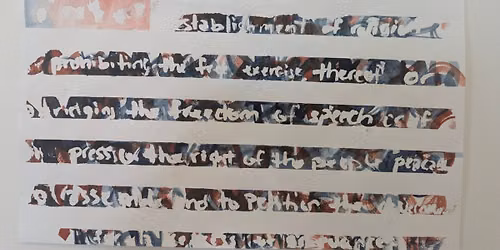 stablishment of religion
prohibiting the free exercise thereof or
bridging the freedom of speech or of
press or the right of the people peacea
to assemble and to petition the